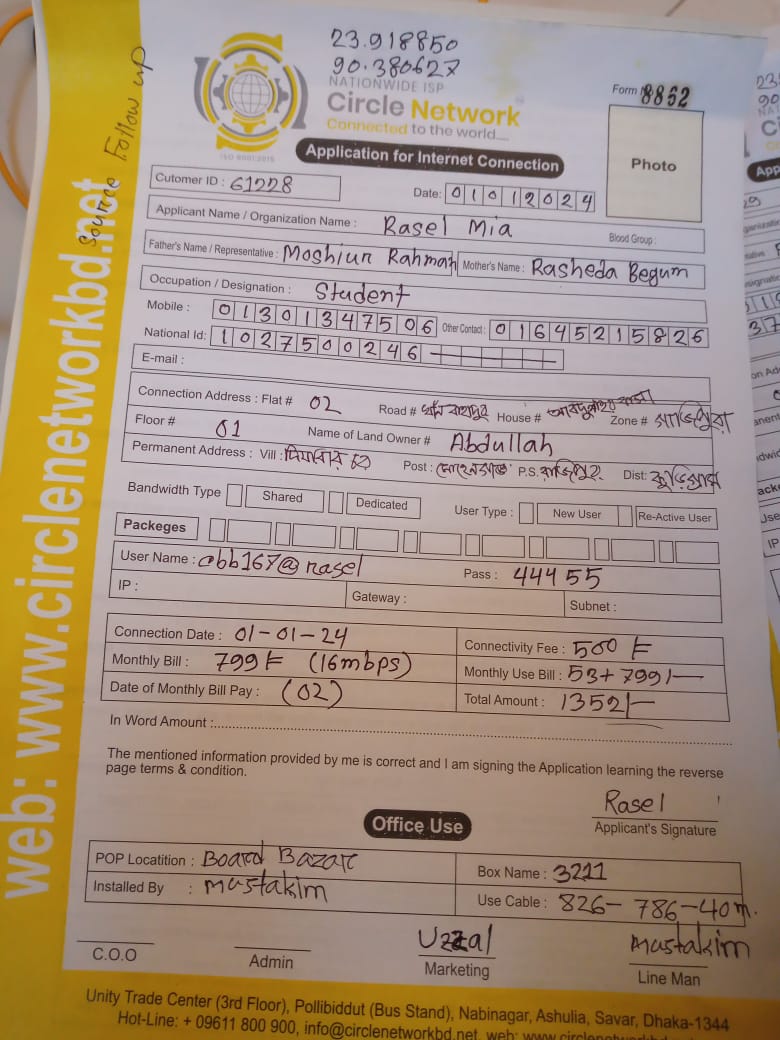 23.918850
90.380627
NATIONWIDE ISP
Circle Network
Connected to the world....
ISO 9001:2015
Form 8862
Photo
Source Follow up
web: www.circlenetworkbd.net
Application for Internet Connection
Cutomer ID : 61228
Date: 01012024
Applicant Name / Organization Name : Rasel Mia
Blood Group :
Father's Name / Representative : Moshiur Rahman Mother's Name : Rasheda Begum
Occupation / Designation : Student
Mobile : 01301347506 Other Contact : 01645215826
National Id: 1027500246
E-mail :
Connection Address : Flat # 02 Road # House # Zone #
Floor # 01 Name of Land Owner # Abdullah
Permanent Address : Vill : Post : P.S. Dist: কুড়িগ্রাম
Bandwidth Type Shared Dedicated User Type : New User Re-Active User
Packeges
User Name : cbb167@rasel Pass : 44455
IP : Gateway : Subnet :
Connection Date : 01-01-24 Connectivity Fee : 500 ৳
Monthly Bill : 799৳ (16mbps) Monthly Use Bill : 53+799/-
Date of Monthly Bill Pay : (02) Total Amount : 1352/-
In Word Amount :
The mentioned information provided by me is correct and I am signing the Application learning the reverse
page terms & condition.
Rasel
Applicant's Signature
Office Use
POP Locatition : Board Bazar Box Name : 3221
Installed By : Mustakim Use Cable : 826-786-40m.
Uzzal Mustakim
C.O.O Admin Marketing Line Man
Unity Trade Center (3rd Floor), Pollibiddut (Bus Stand), Nabinagar, Ashulia, Savar, Dhaka-1344
Hot-Line: + 09611 800 900, info@circlenetworkbd.net, web: www.circlenetworkbd